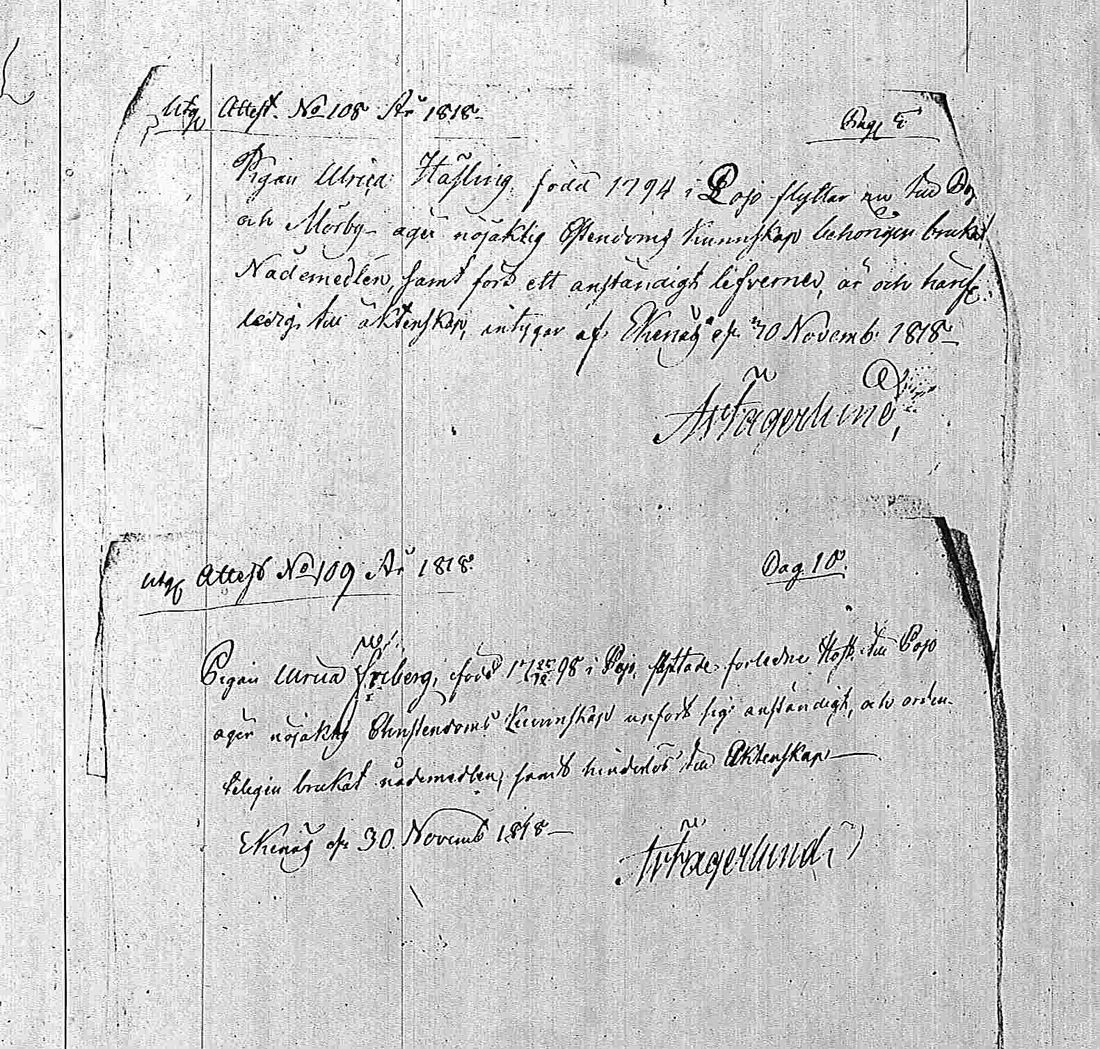 Utg Attest. No 108 År 1818
Pag 5
Pigan Ulrica Häsling, född 1794 i Pojo flyttar nu till
och Mörby – äger nöjaktig Christendoms kunnskap behörigen brukat
Nådemedlen, samt fört ett anständigt lefverne, är och härifr:
ledig till äktenskap, intygar af Ekenäs d. 30 Novemb: 1818 –
Fagerlund
Utg Attest No 109 År 1818.
Pag. 10.
Pigan Ulrica Friberg, född 17 98 i Pojo, flyttade förledne Höst till Pojo
äger nöjaktig Christendoms Kunnskap upfört sig anständigt, och orden-
teligen brukat nådemedlen, samt hinderlös till Äktenskap –
Ekenäs d. 30. Novemb 1818 –
Fagerlund